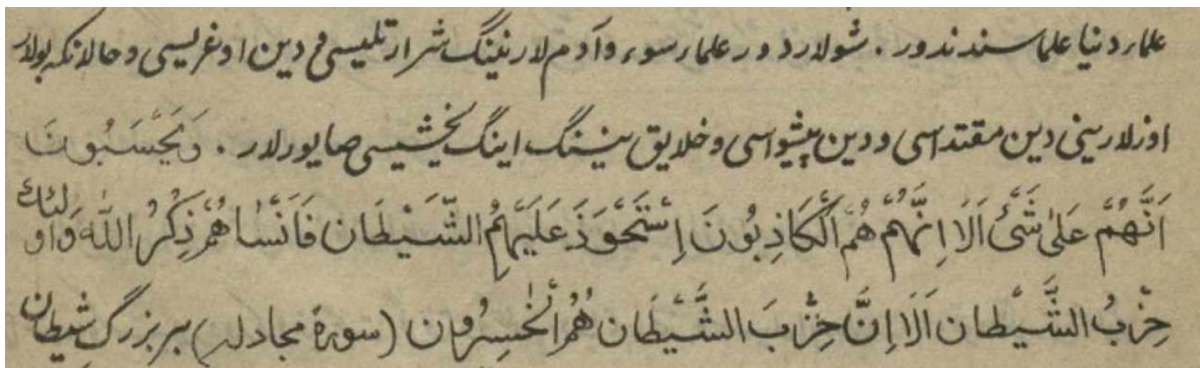 علماء دنیا علماسندندور . شولاردور علماء سوء و آدم لارنینگ شرارتلیسی و دین اوغریسی و حالانکه بولار
اوزلارینی دین مقتداسی و دین پیشواسی و خلایق نینگ اینگ یخشیسی صایورلار . وَیَحْسَبُونَ
اَنَّهُمْ عَلٰی شَیْئٍ اَلَا اِنَّهُمْ هُمُ الْکَاذِبُونَ اِسْتَحْوَذَ عَلَیْهِمُ الشَّیْطَان فَاَنْسٰاهُمْ ذِکْرُ اللّٰه وَاُولٰئك
حِزْبُ الشَّیْطَان اَلَا اِنَّ حِزْبَ الشَّیْطَان هُمُ الْخٰسِرُون (سورهٔ مجادله) بیر بزرگ شیطان